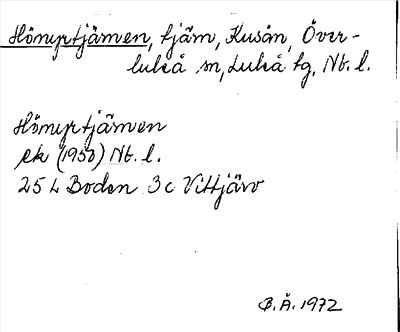 Hömyrtjärnen, tjärn, Kusån, Över-
luleå sn, Luleå tg, Nb. l.
Hömyrtjärnen
ek (1950) Nb. l.
25 L Boden 3c Vittjärv
B.Å. 1972